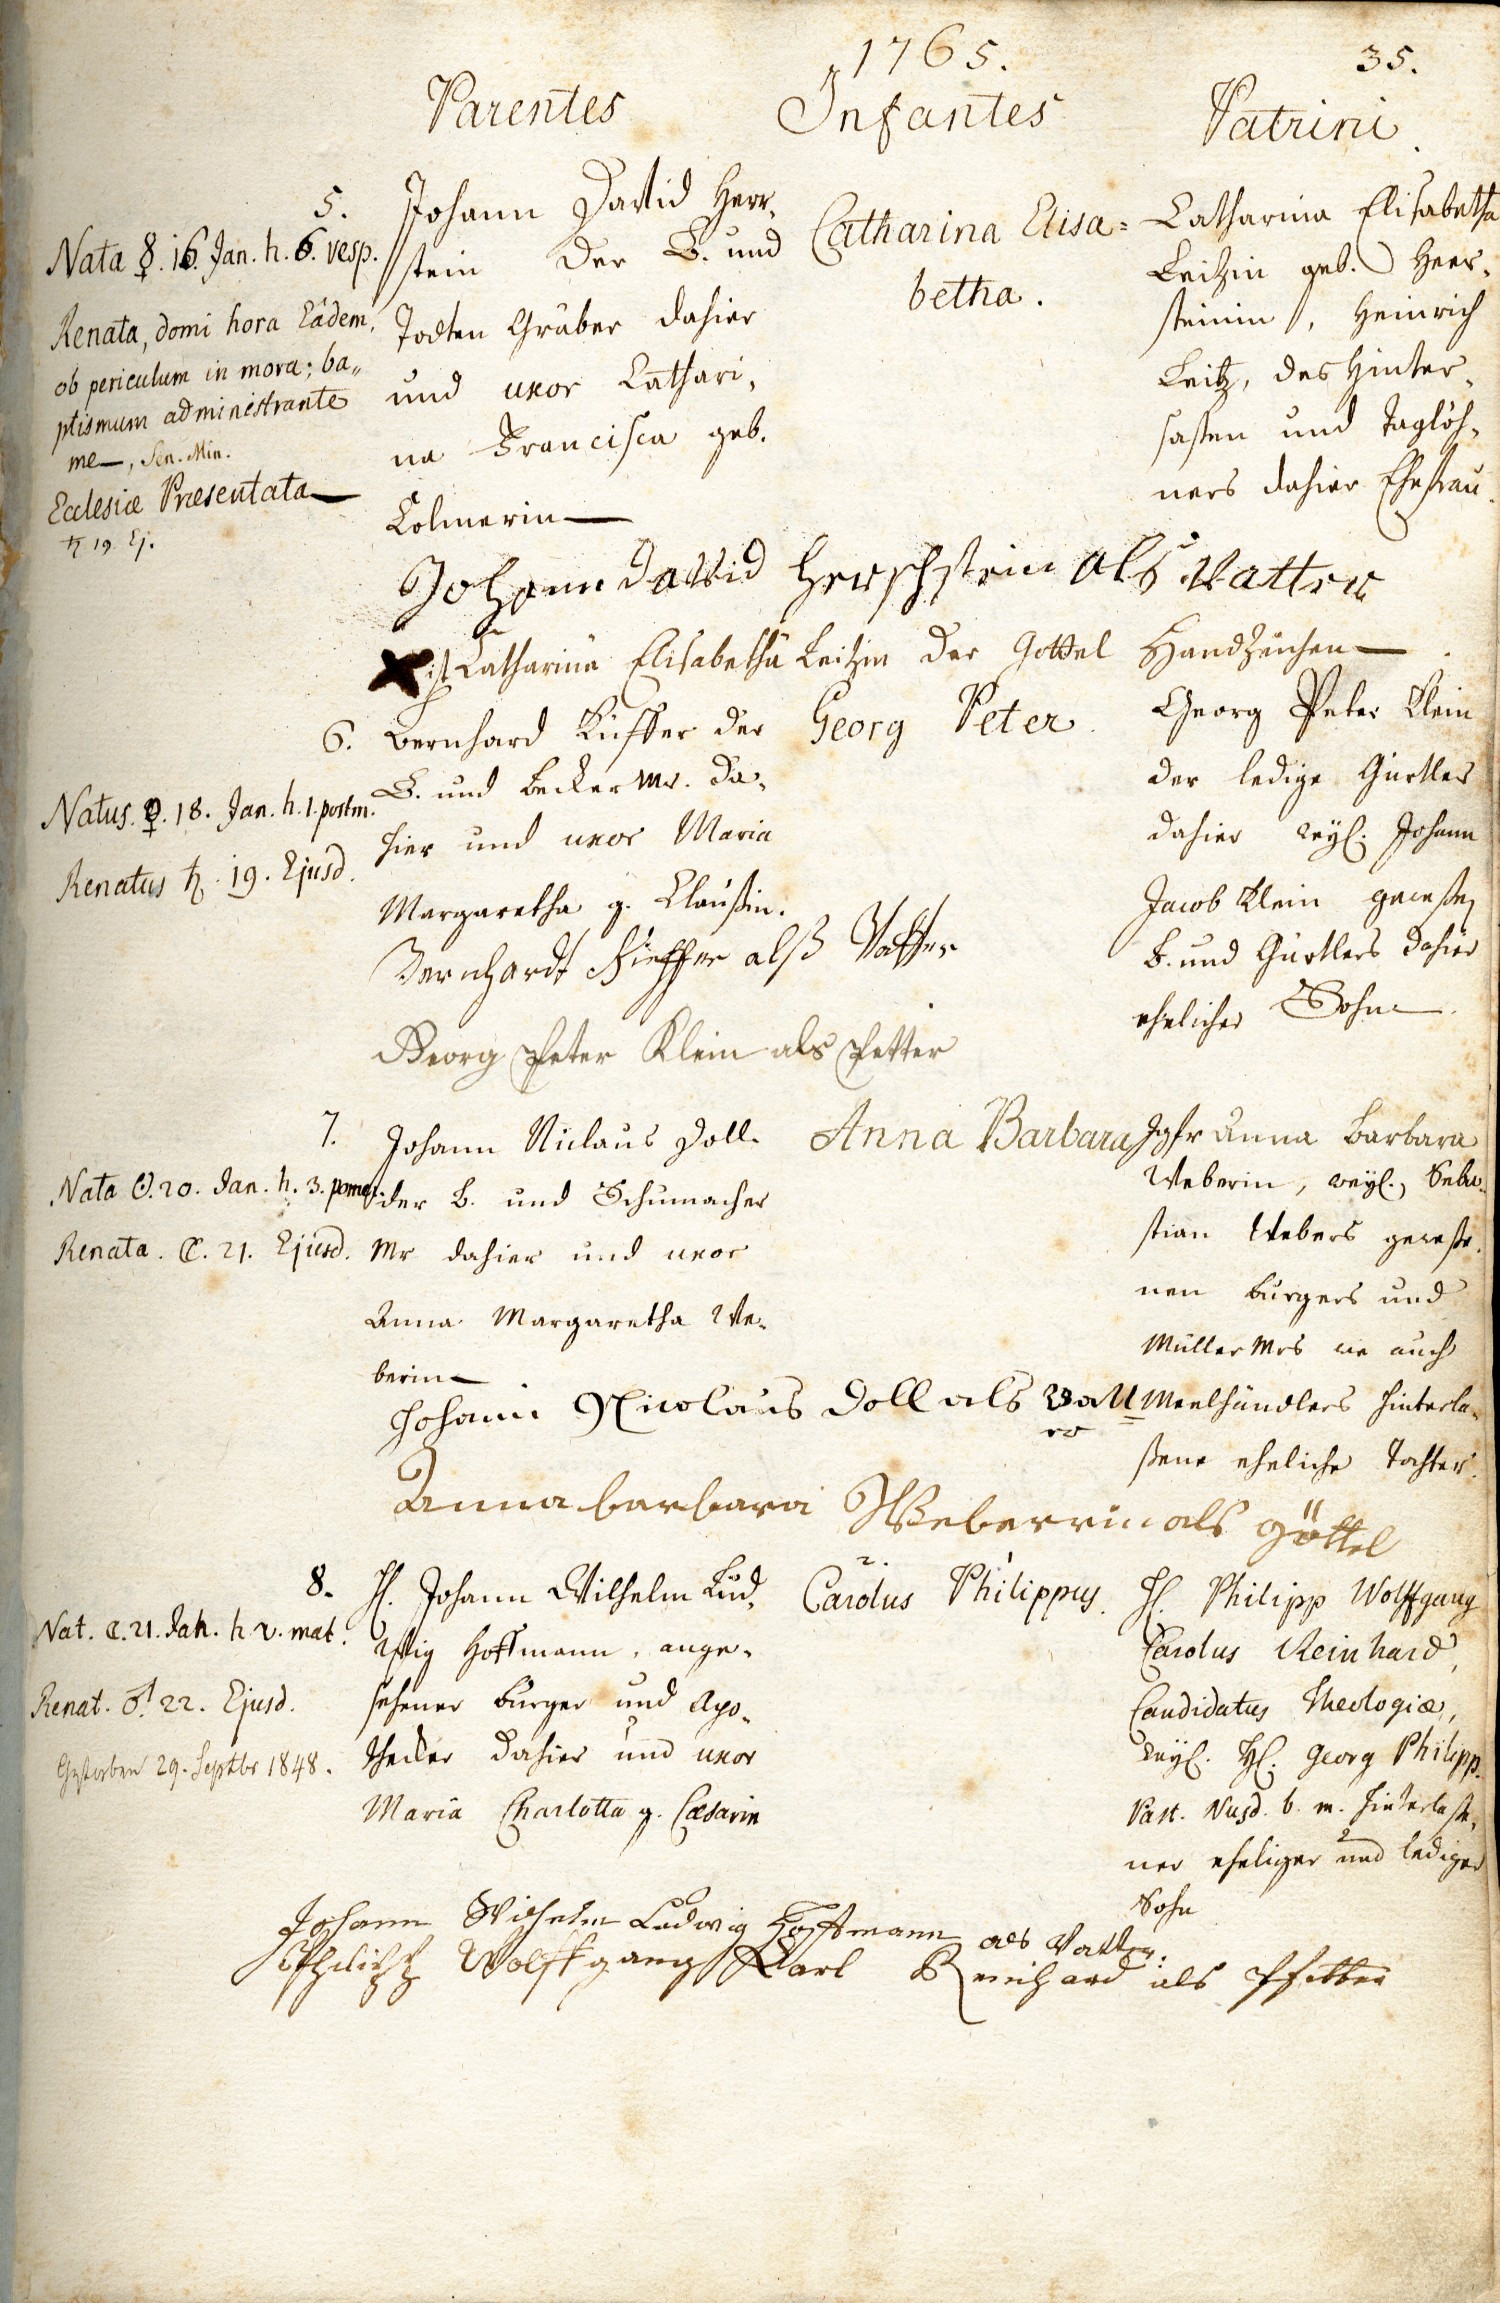 1765.
35.
Parentes
Infantes
Patrini.
5.
Nata ☿. 16. Jan. h. 6. vesp.
Renata, domi hora Eâdem,
ob periculum in mora; ba„
ptismum administrante
me—, Sen. Min.
Ecclesiæ Præsentata—
♄ 19. Ej.
Johann David Herr-
stein der B. und
Todten Gräber dahier
und uxor Cathari-
na Francisca geb.
Colmerin—
Catharina Elisa=
betha.
Catharina Elisabetha
Leitzin geb. Heer-
steinin, Heinrich
Leitz, des Hinter-
saßen und Taglöh-
ners dahier Ehefrau.
Johann david Herschstein als Vatter
X ist Catharina Elisabetha Leitzin der Gottel Handzeichen—
6.
Natus. ♀. 18. Jan. h. 1. postm.
Renatus ♄. 19. Ejusd.
Bernhard Küffer der
B. und Becker Mr. da-
hier und uxor Maria
Margaretha g. Claußin.
Georg Peter.
Georg Peter Klein
der ledige Gürtler
dahier weyl. Johann
Jacob Klein geweßen
B. und Gürtlers dahier
ehelicher Sohn
Bernhardt Kieffer alß Vatter
Georg Peter Klein als Petter
7.
Nata ☉. 20. Jan. h. 3. pomer.
Renata. ☾. 21. Ejusd.
Johann Niclaus Doll
der B. und Schumacher
Mr dahier und uxor
Anna Margaretha We-
berin—
Anna Barbara
Jgfr Anna Barbara
Weberin, weyl. Seba-
stian Webers geweße-
nen Bürgers und
Müller Mrs wie auch
Meelhändlers hinterla-
ßene eheliche Tochter.
Johann Nicolaus Doll als Vatt
er
Anna barbara Weberrin als göttel
8.
Nat. ☾. 21. Jan. h. 2. mat.
Renat. ♂. 22. Ejusd.
Gestorben 29. Septbr 1848.
H. Johann Wilhelm Lud-
wig Hoffmann, ange-
sehener Bürger und Apo-
thecker dahier und uxor
Maria Charlotta g. Cæsarin
2.
Carolus Philippus.
H. Philipp Wolffgang
Carolus Reinhard,
Candidatus Theologiæ,
weyl. H. Georg Philipp
Past. Nusd. b. m. hinterlaße-
ner eheliger und lediger
Sohn
Johann Wilhelm Ludwig Hoffmann als Vatter.
Philipp Wolffgang Karl Reinhard als Pfetter